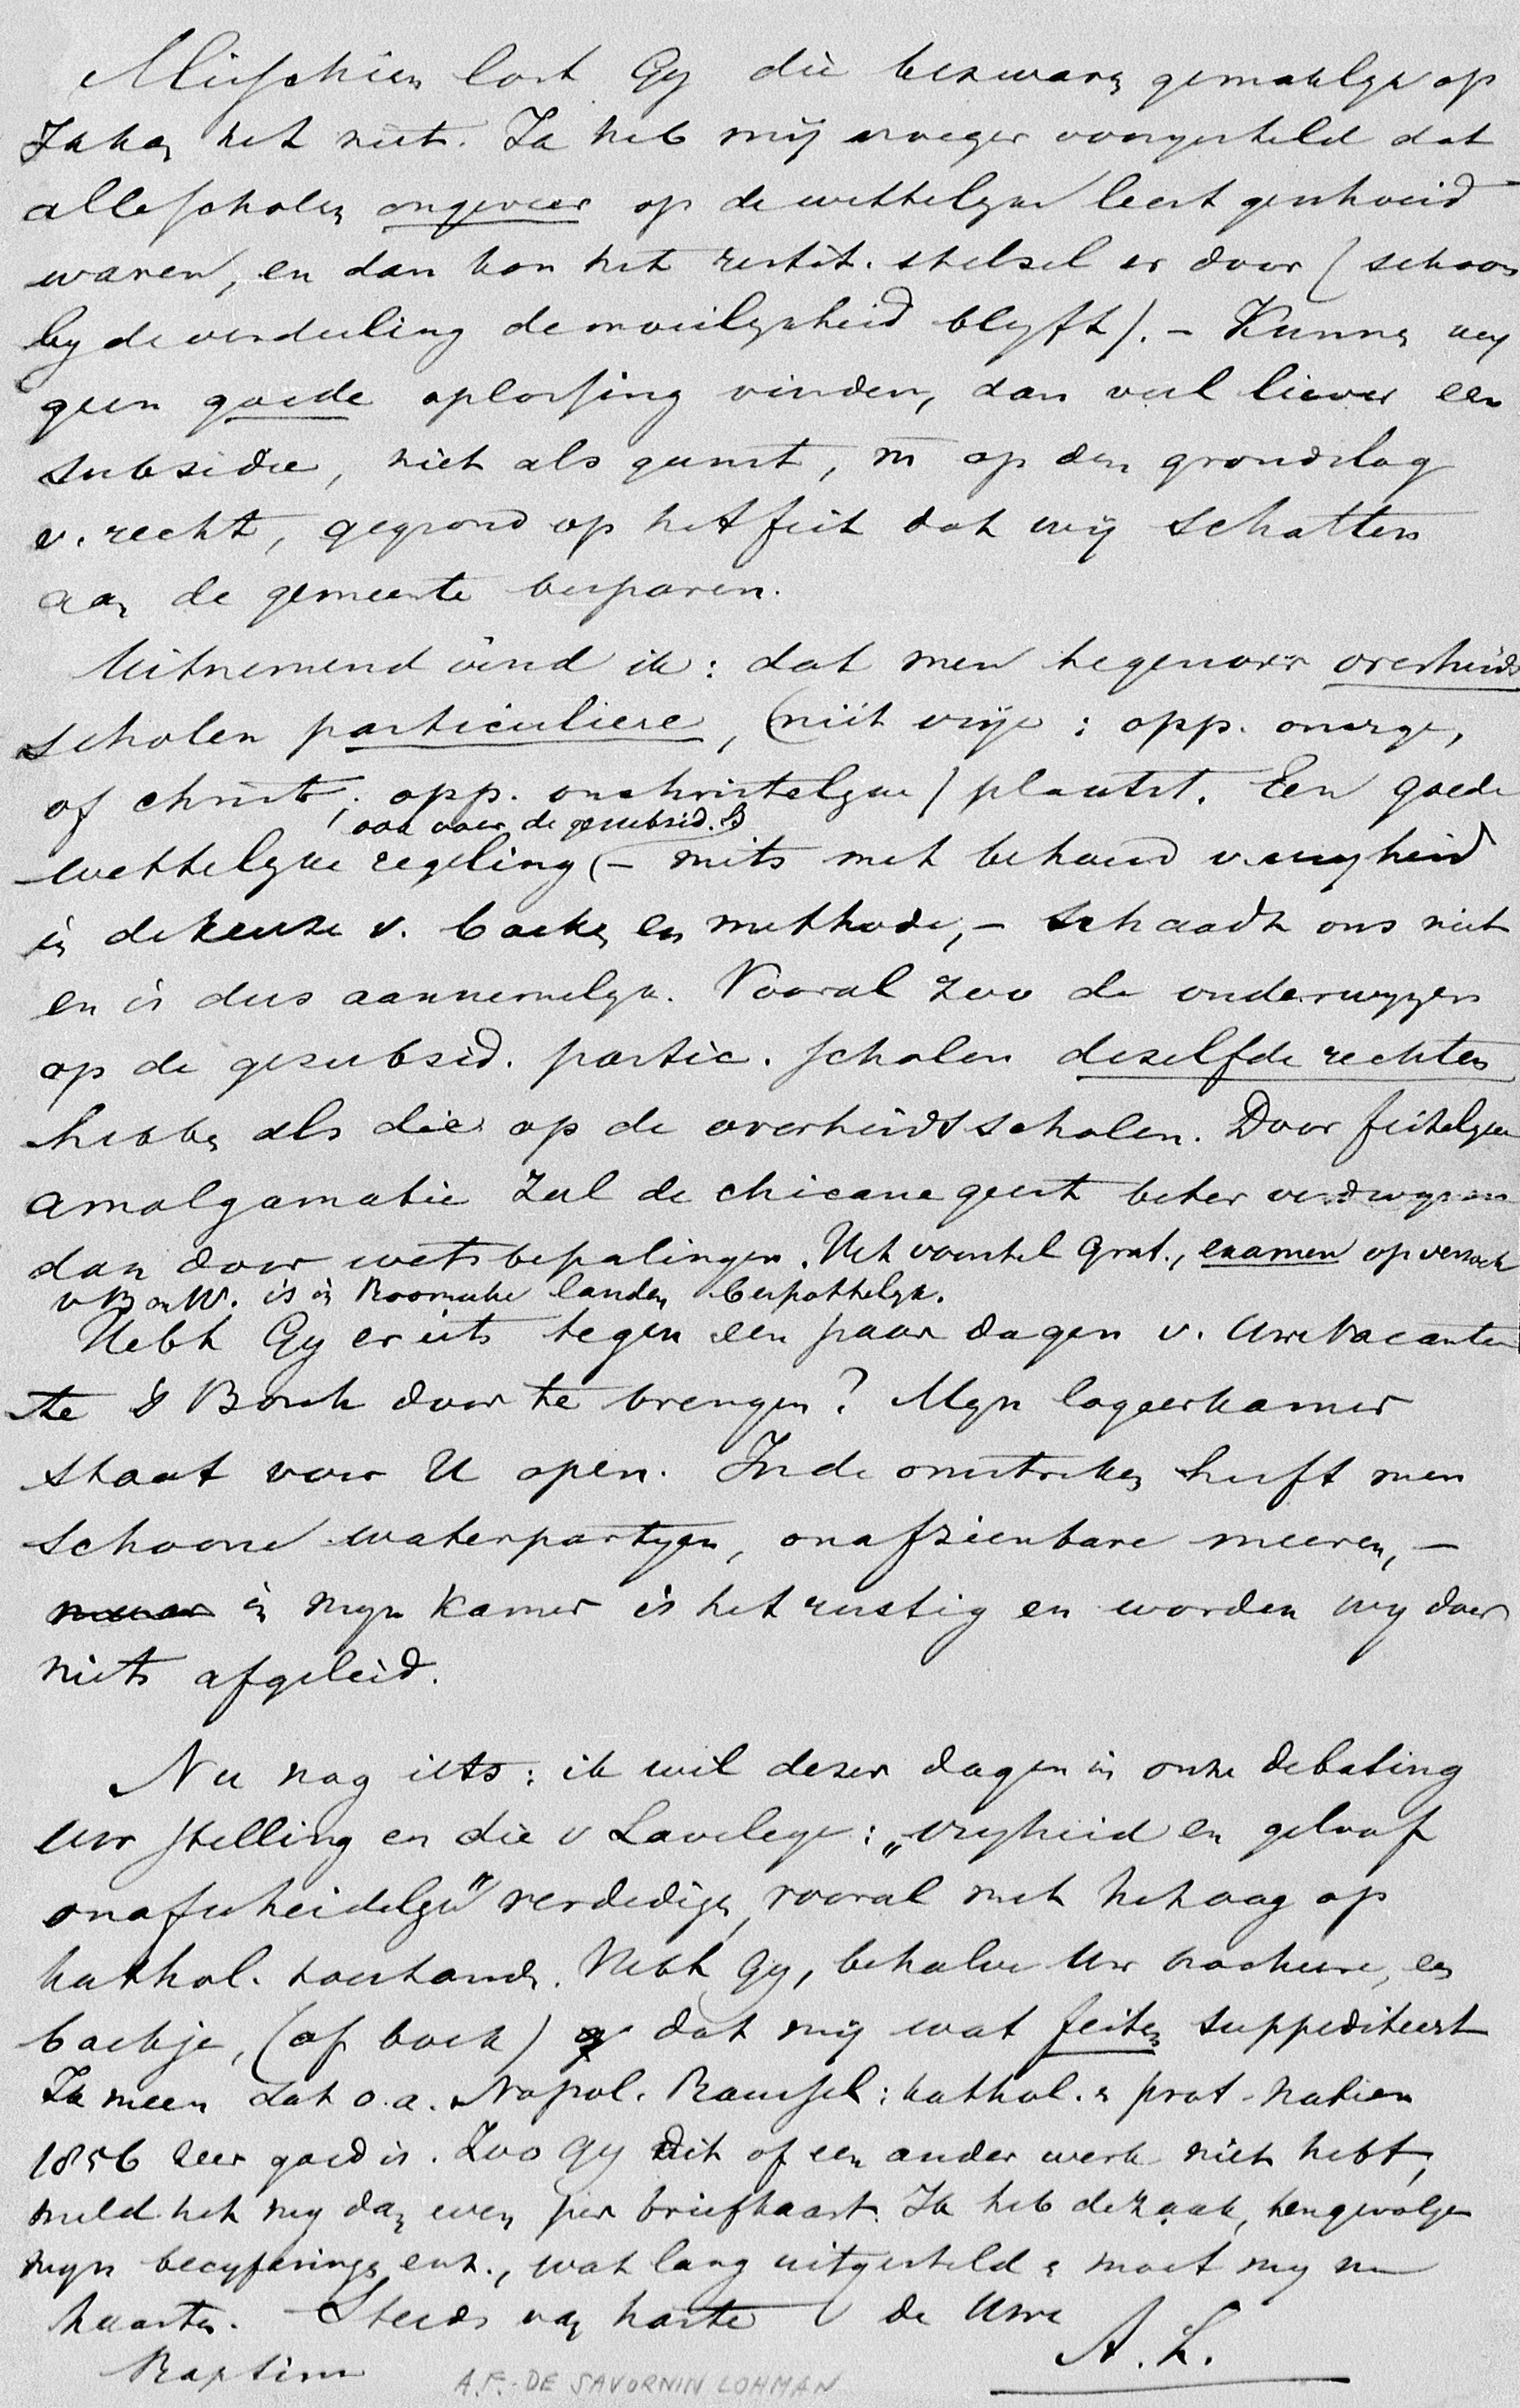 Misschien lost Gy die bezwaren gemaklyk op
Ik kan het niet. Ik heb mij vroeger voorgesteld dat
alle scholen ongeveer op de wettelyke leest geschoeid
waren, en dan kon het restit. stelsel er door (schoon
by de verdeeling de moeilykheid blyft). - Kunnen wy
geen goede oplossing vinden, dan veel liever een
subsidie, niet als gunst, m op den grondslag
v. recht, gegrond op het feit dat wij schatten
aan de gemeente besparen.
Uitnemend vind ik: dat men tegenover overheids
scholen particuliere, (niet vrije: opp. onvrye,
of christ. opp. onchristelyke) plaatst. Een goede
ook voor de gesubsid.
wettelyke regeling (- mits met behoud v. vryheid
in de keuze v. boeken en methode, - schaadt ons niet
en is dus aannemelyk. Vooral zoo de onderwyzers
op de gesubsid. partic. scholen dezelfde rechten
hebben als die op de overheidsscholen. Door feitelyke
amalgamatie zal de chicane geest beter verdwynen
dan door wetsbepalingen. Het voorstel Grat., examen op verzoek
v B en W. is in Roomsche landen bespottelyk.
Hebt Gy er iets tegen een paar dagen v. Uwe vacantie
te 's Bosch door te brengen? Myn logeerkamer
staat voor U open. In de omstreken heeft men
schoone waterpartyen, onafzienbare meeren, -
in myn kamer is het rustig en worden wy door
niets afgeleid.
Nu nog iets: ik wil dezer dagen in onze debating
Uw stelling en die v Laveleye: „vryheid en geloof
onafscheidelyk" verdedigen, vooral met het oog op
kathol. toestanden. Hebt Gy, behalve Uw brochure, een
boekje, (of boek) dat mij wat feiten suppediteert
Ik meen dat o.a. Napol. Roussel: kathol. & prot. natien
1856 zeer goed is. Zoo Gy dit of een ander werk niet hebt,
meld het my dan even per briefkaart. Ik heb de zaak, tengevolge
myn becyferings enz., wat lang uitgesteld & moet my nu
haasten. Steeds van harte de Uwe
A. L.
Raptim
A.F. DE SAVORNIN LOHMAN